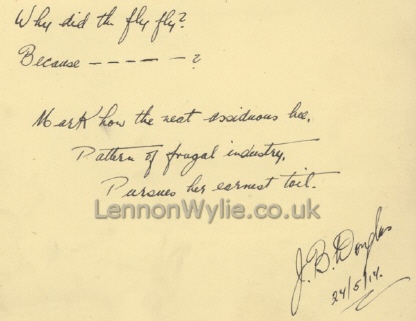 Why did the fly fly?
Because – – – – – ?
Mark how the neat assiduous bee,
Pattern of frugal industry,
Pursues her earnest toil.
LennonWylie.co.uk
J. B. Douglas
24/5/14.